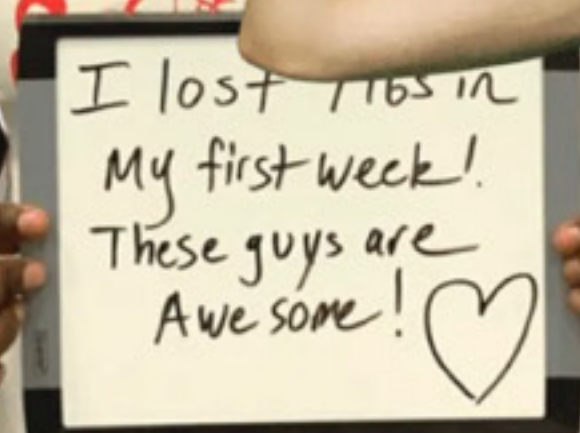 I lost in
My first week!
These guys are
Awesome!